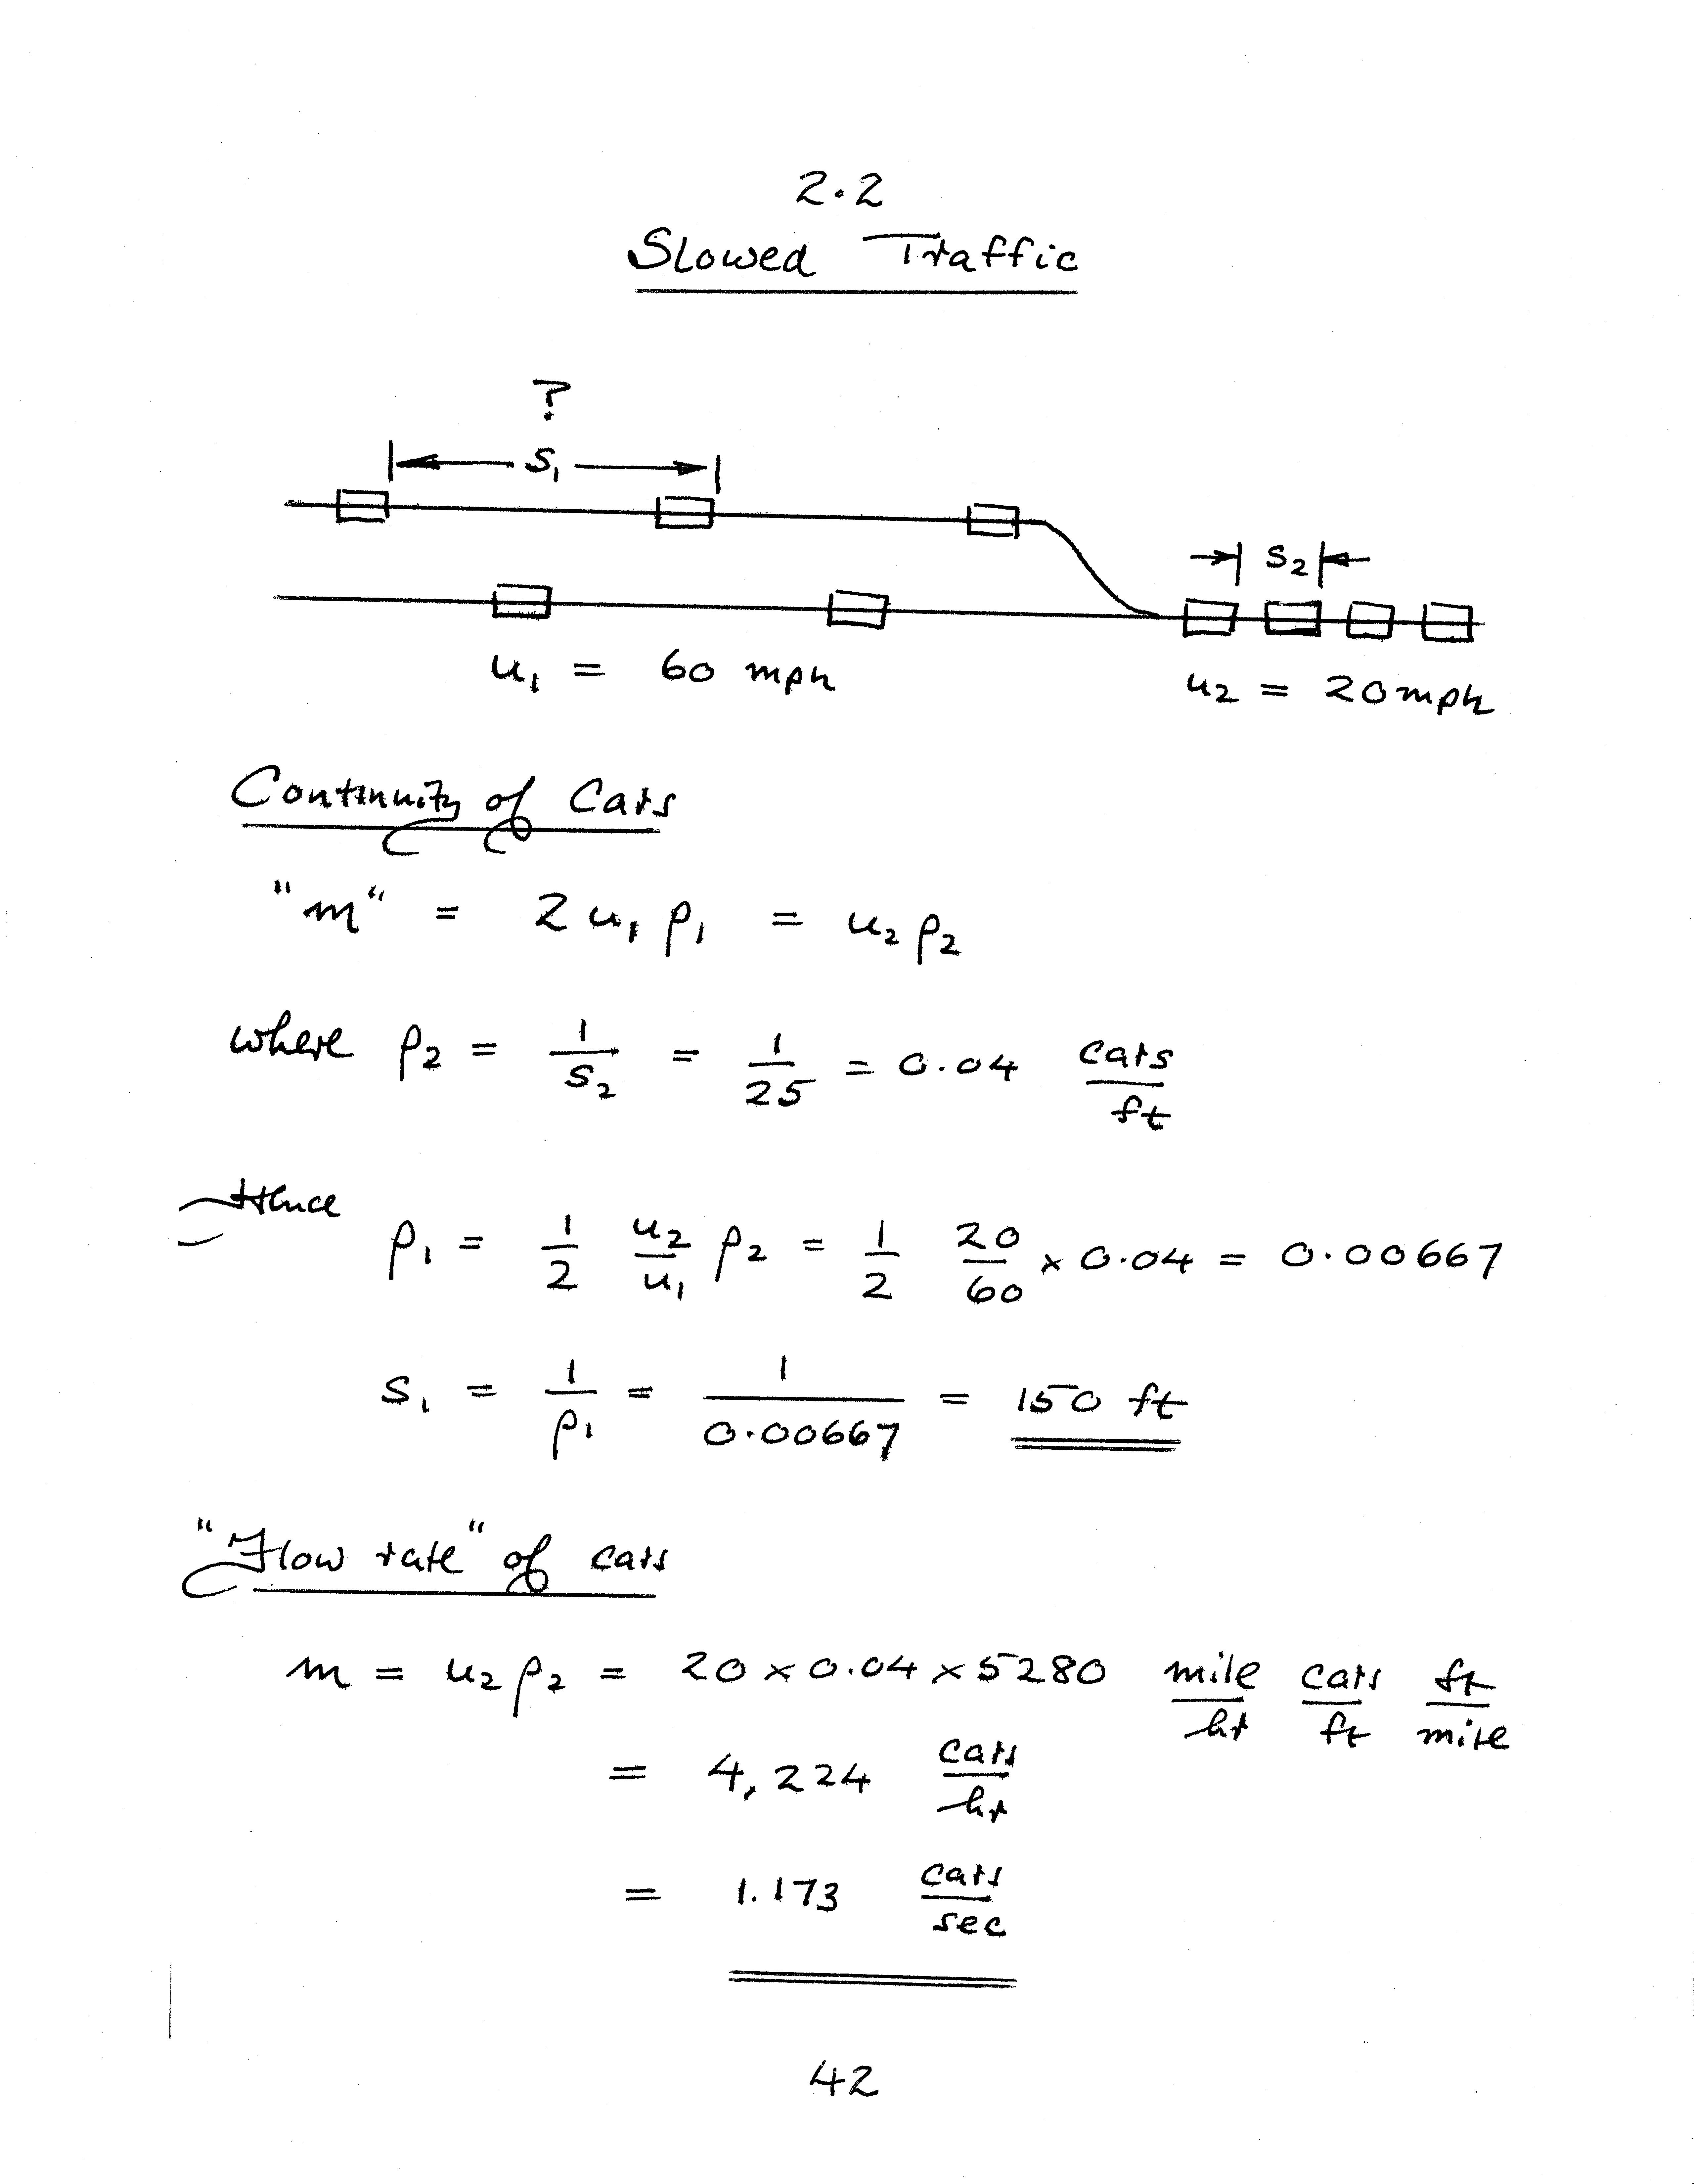 2.2
Slowed Traffic
?
s₁
s₂
u₁ = 60 mph
u₂ = 20 mph
Continuity of Cars
"m" = 2 u₁ ρ₁ = u₂ ρ₂
where ρ₂ = 1/s₂ = 1/25 = 0.04 cars/ft
Hence
ρ₁ = 1/2 u₂/u₁ ρ₂ = 1/2 20/60 × 0.04 = 0.00667
s₁ = 1/ρ₁ = 1/0.00667 = 150 ft
"Flow rate" of cars
m = u₂ ρ₂ = 20 × 0.04 × 5280 mile/hr cars/ft ft/mile
= 4,224 cars/hr
= 1.173 cars/sec
42